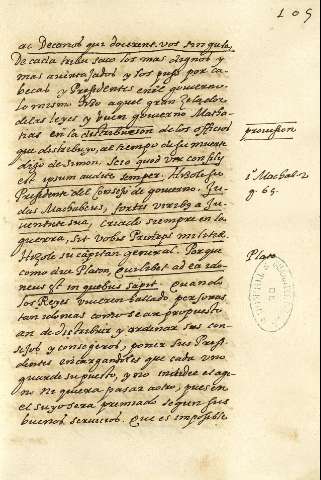 105
ac Decanos qui docerent vos singula,
De cada tribu saco los mas dignos y
mas aventajados y los puso por ca-
becas y Presidentes en el gouierno
lo mismo hizo aquel gran zelador
de las leyes y buen gouierno Matha-
tias en la distribucion de los officios
que distribuyo, al tiempo de su muerte
dixo de Simon. Scio quod vir consilij
est ipsum audite semper. Hizole su
Presidente del Consejo de gouierno. Ju-
das Machabeus, fortis viribus a Ju-
uentute sua, criado siempre en la
guerra, sit vobis Princeps militiæ.
Hizole su capitan general. Porque
como dice Platon, Quilibet ad ea ido-
neus est in quibus sapit. Quando
los Reyes vuieren hallado personas
tan idoneas como se an propuesto
an de distribuir y ordenar sus con-
sejos y consegeros, poner sus Presi-
dentes encargandoles que cada vno
guarde su puesto, y no
ni quiera pasar a otro, pues en
el suyo sera premiado segun sus
buenos seruicios. Que es imposible
prouission
1º Machab. 2
65.
Plato